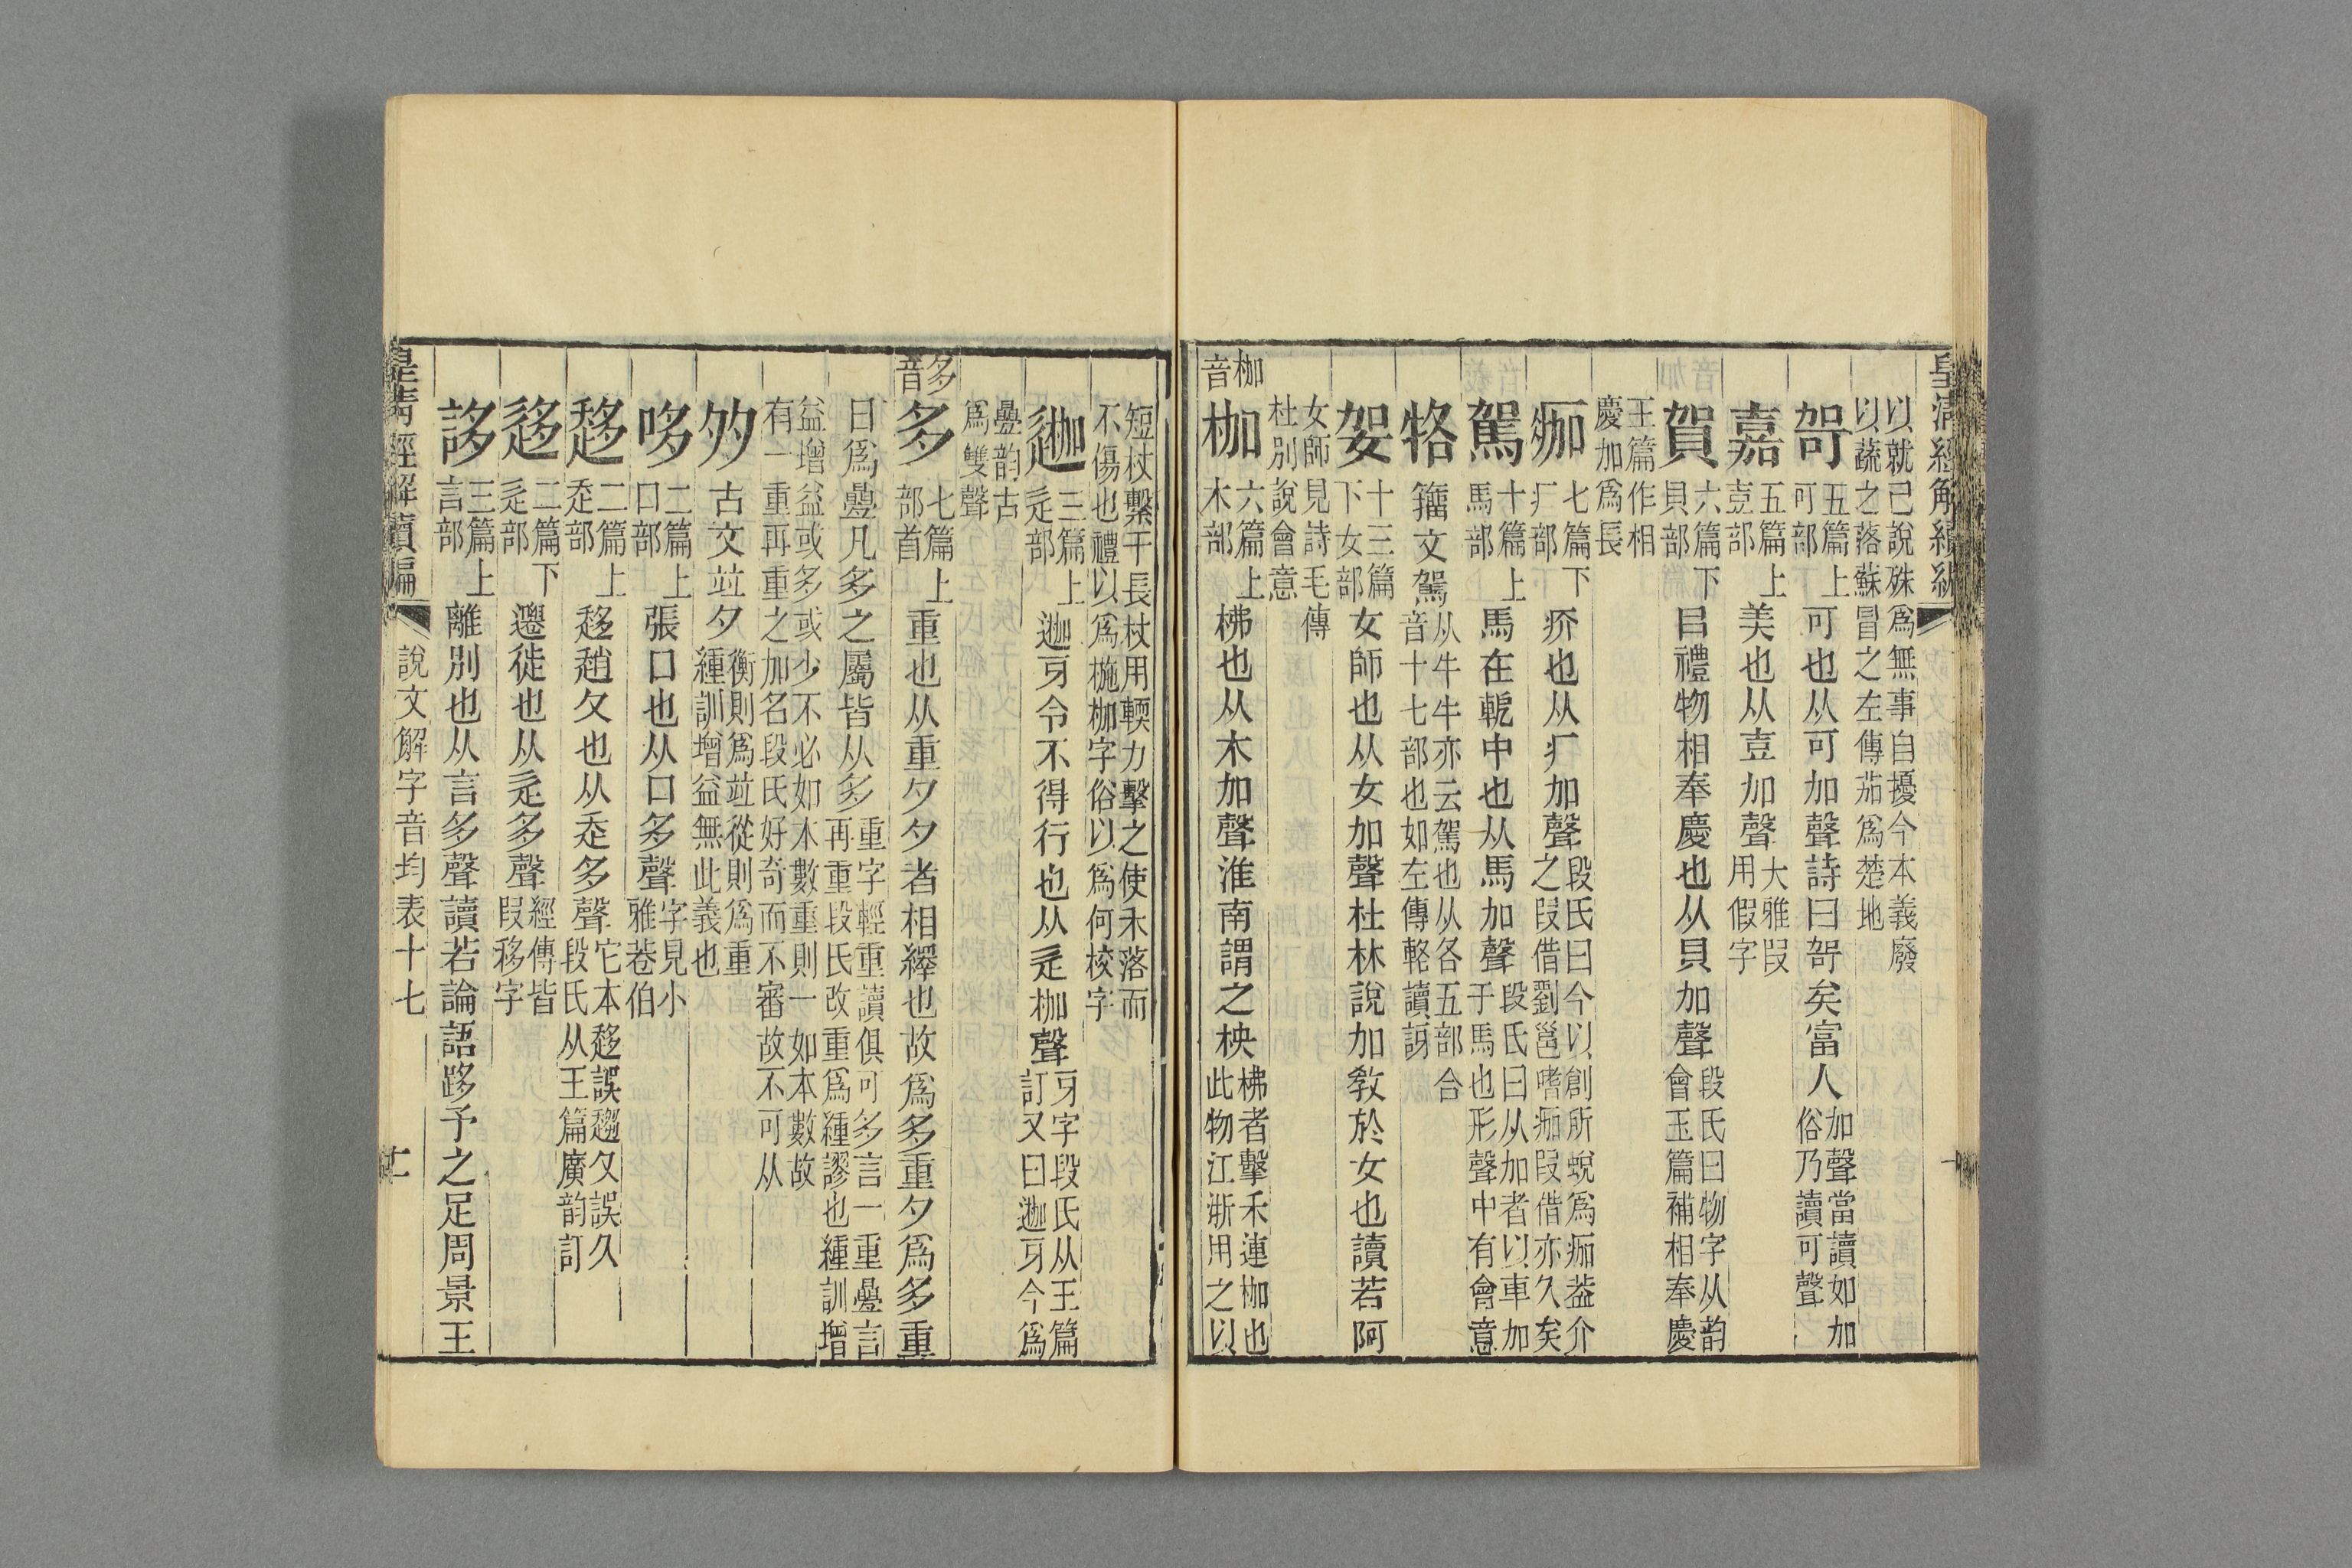 皇清經解續編
以就已說殊爲無事自擾今本義廢
以蔬之落蘇冒之左傳茄爲楚地
哿 五篇上可部 可也从可加聲詩曰哿矣富人 加聲當讀如加俗乃讀可聲
嘉 五篇上壴部 美也从壴加聲 大雅叚用假字
賀 六篇下貝部 㠯禮物相奉慶也从貝加聲 段氏曰物字从韵會玉篇補相奉慶
王篇作相慶加爲長
痂 七篇下疒部 疥也从疒加聲 段氏曰今以創所蛻爲痂葢介之叚借劉邕嗜痂叚借亦久矣
駕 十篇上馬部 馬在軛中也从馬加聲 段氏曰从加者以車加于馬也形聲中有會意
㹿 籒文駕 从牛牛亦云駕也从各五部合音十七部也如左傳輅讀訝
妿 十三篇下女部 女師也从女加聲杜林說加敎於女也讀若阿
女師見詩毛傳杜別說會意
枷音 枷 六篇上木部 柫也从木加聲淮南謂之柍 柫者擊禾連枷也此物江浙用之以
短杖繫干長杖用輭力擊之使禾落而不傷也禮以爲椸枷字俗以爲何校字
迦 三篇上辵部 迦㸦令不得行也从辵枷聲 㸦字段氏从王篇訂又曰迦㸦今爲
疊韵古爲雙聲
多音 多 七篇上部首 重也从重夕夕者相繹也故爲多重夕爲多重
日爲疊凡多之屬皆从多 重字輕重讀俱可多言一重疊言再重段氏改重爲緟謬也緟訓增
益增益或多或少不必如本數重則一如本數故有一重再重之加名段氏好奇而不審故不可从
𡖇 古文竝夕 衡則爲竝從則爲重緟訓增益無此義也
哆 二篇上口部 張口也从口多聲 字見小雅巷伯
趍 二篇上走部 趍趙夂也从走多聲 它本趍誤趨夂誤久段氏从王篇廣韵訂
迻 二篇下辵部 遷徙也从辵多聲 經傳皆叚移字
誃 三篇上言部 離別也从言多聲讀若論語跢予之足周景王
皇淸經解續編 說文解字音均表十七 十二